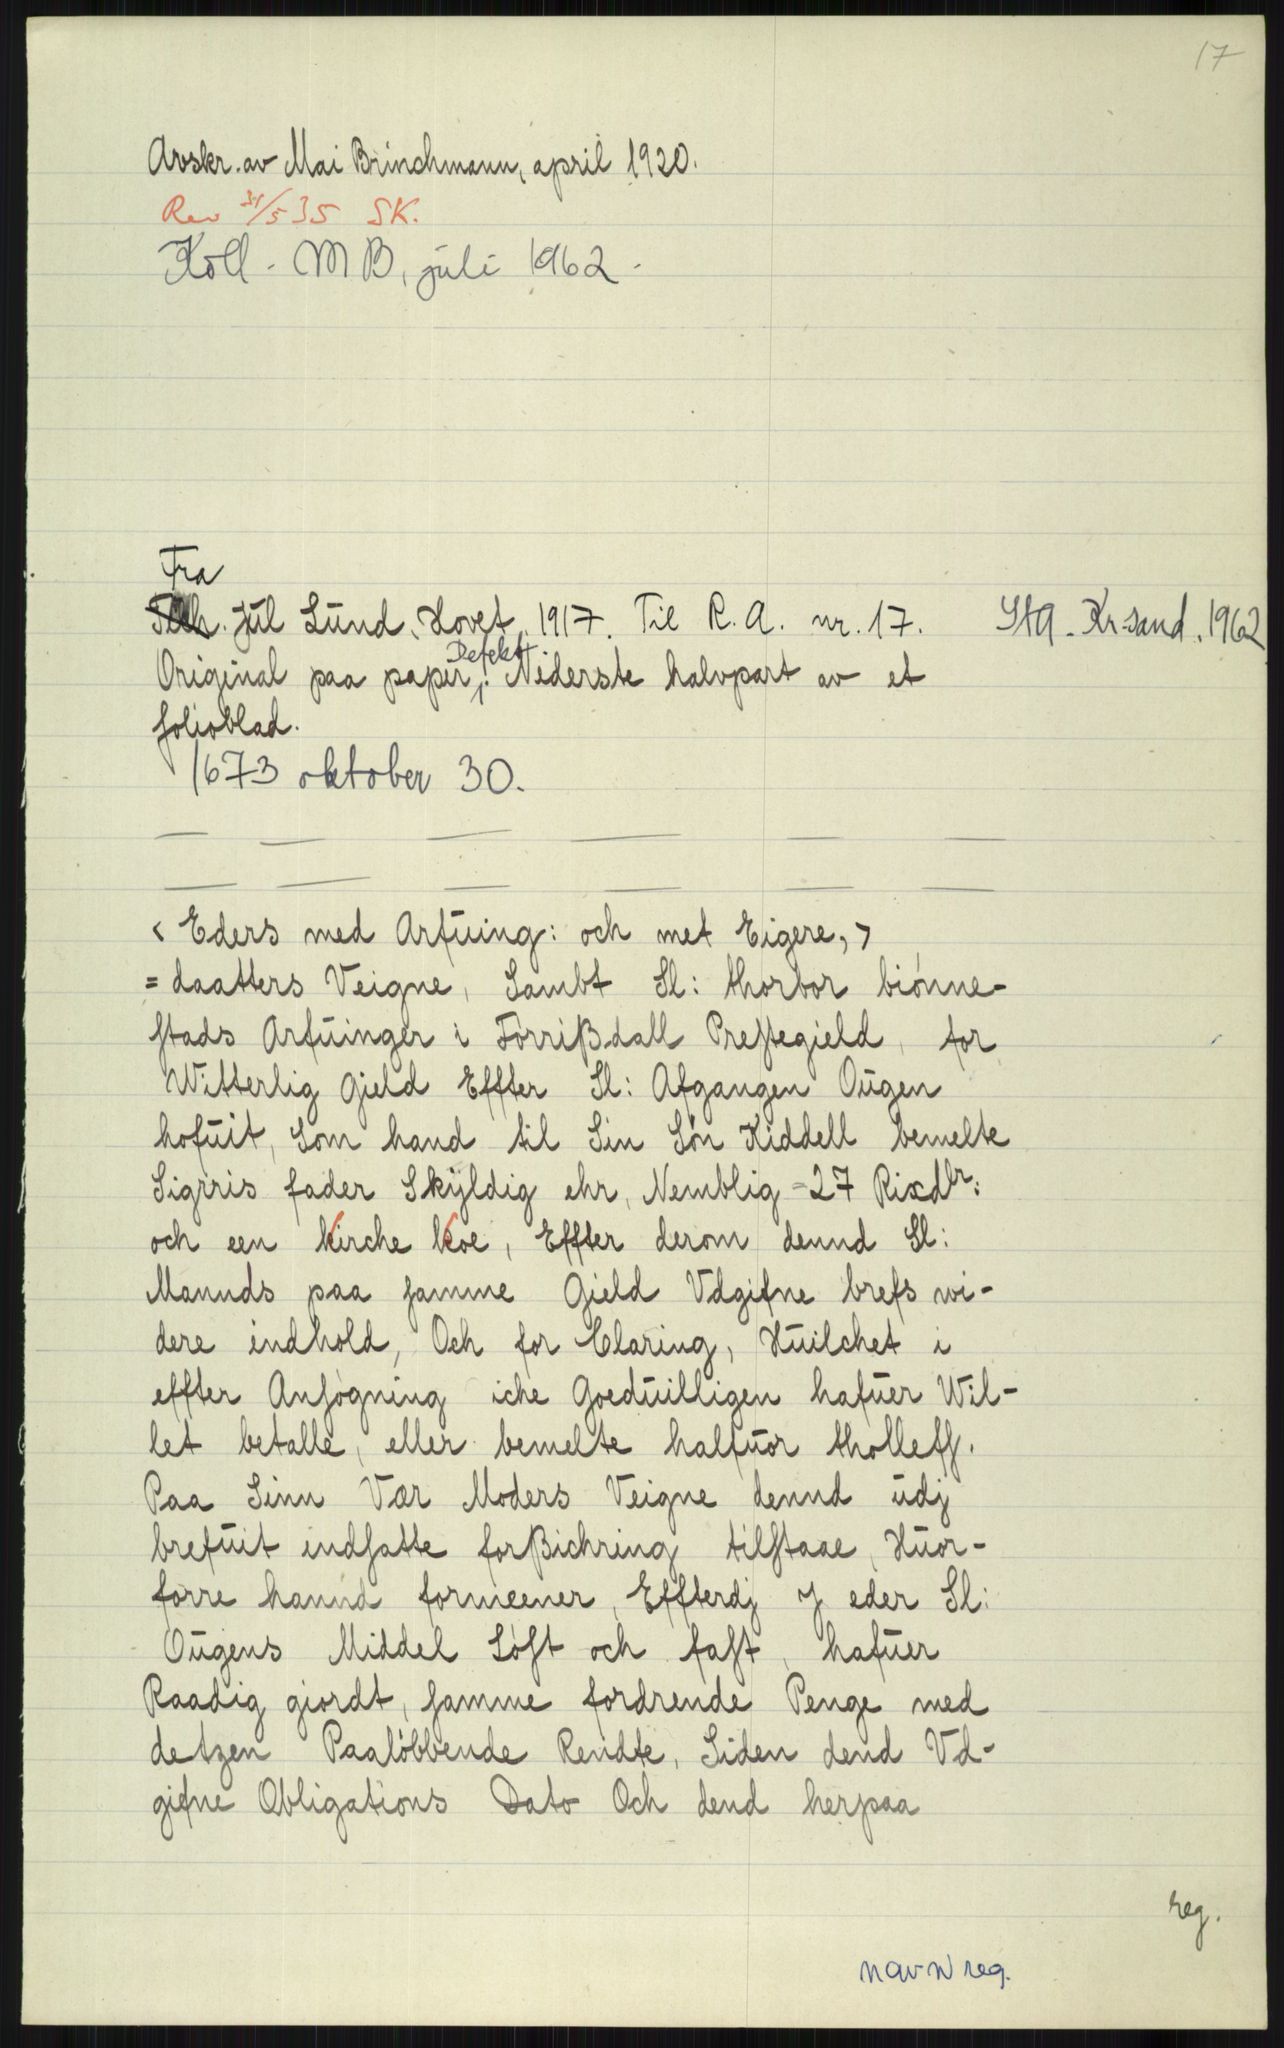 17
Avskr. av Mai Brinchmann, april 1920.
Rev 31/5 35 SK.
Koll. MB, juli 1962.
Fra
Jul Lund, Hovet, 1917. Til R. A. nr. 17. StA. Kr.sand. 1962
Defekt
Original paa paper,. Nederste halvpart av et
folioblad.
1673 oktober 30.
— — — — — —
— — — — — —
< Eders med Arfuing: och met Eigere, >
= daatters Veigne, Sambt Sl: thorbor biønne-
stads Arfuinger i Förrißdall Prestegield, for
Witterlig Gield Effter Sl: Afgangen Oŭgen
hofŭit, Som hand til Sin Søn Kiddell bemelte
Sigrris fader Skÿldig ehr, Nemblig = 27 Rixdlr:
och een kirche koe, Effter derom dennd Sl:
Mannds paa samme Gield Vdgifne brefs wi-
dere indhold, Och for Claring, Hŭilchet i
effter Ansøgning iche Goedŭilligen hafŭer Wil-
let betalle, eller bemelte halfŭor tholleffs.
Paa Sinn Vær Moders Veigne dennd ŭdj
brefŭit indsatte forßichring tilstaae, Hŭor-
førre hannd formeener, Effterdj J eder Sl:
Oŭgens Middel Løst och fast, hafŭer
Raadig giordt, samme fordrende Penge med
detzen Paaløbbende Rendte, Siden dend Vd-
gifne Obligations Dato Och dend herpaa
reg.
navn reg.